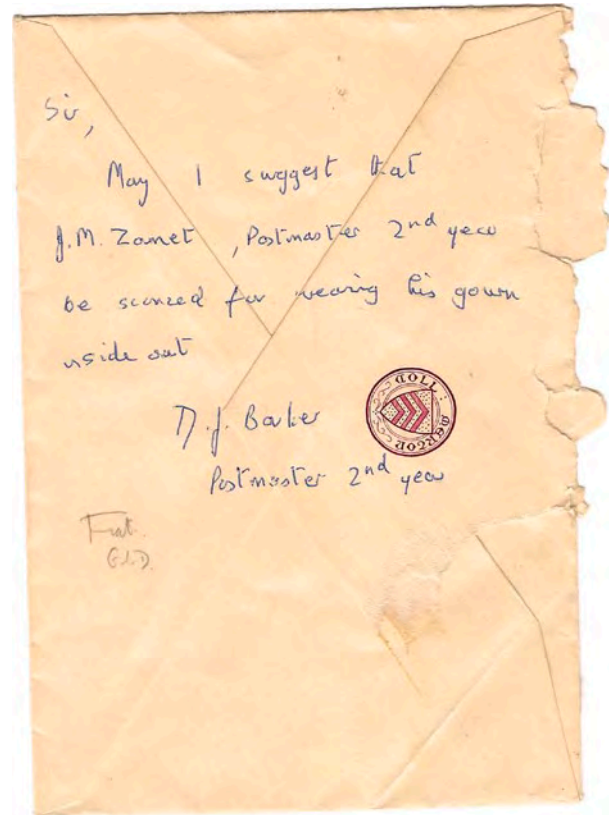 Sir,
May I suggest that
J.M. Zamet, Postmaster 2nd year
be sconced for wearing his gown
inside out
D.J. Barker
Postmaster 2nd year
COLL:
MERTON
Fiat.